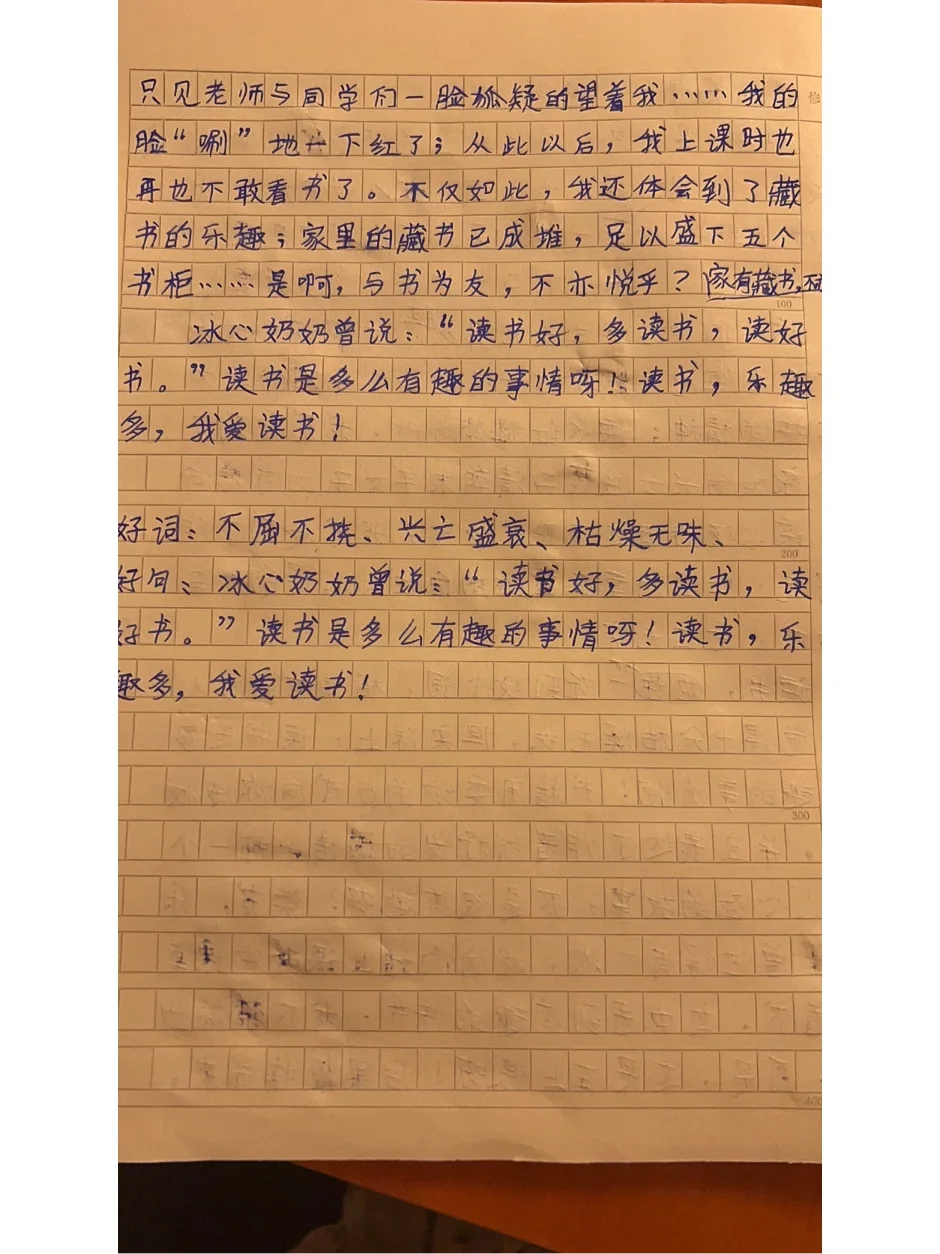 只见老师与同学们一脸狐疑的望着我……我的
脸“唰”地一下红了；从此以后，我上课时也
再也不敢看书了。不仅如此，我还体会到了藏
书的乐趣；家里的藏书已成堆，足以盛下五个
书柜……是啊，与书为友，不亦悦乎？家有藏书，不
100
冰心奶奶曾说：“读书好，多读书，读好
书。”读书是多么有趣的事情呀！读书，乐趣
多，我爱读书！
好词：不屈不挠、兴亡盛衰、枯燥无味、
200
好句：冰心奶奶曾说：“读书好，多读书，读
好书。”读书是多么有趣的事情呀！读书，乐
趣多，我爱读书！
300
400